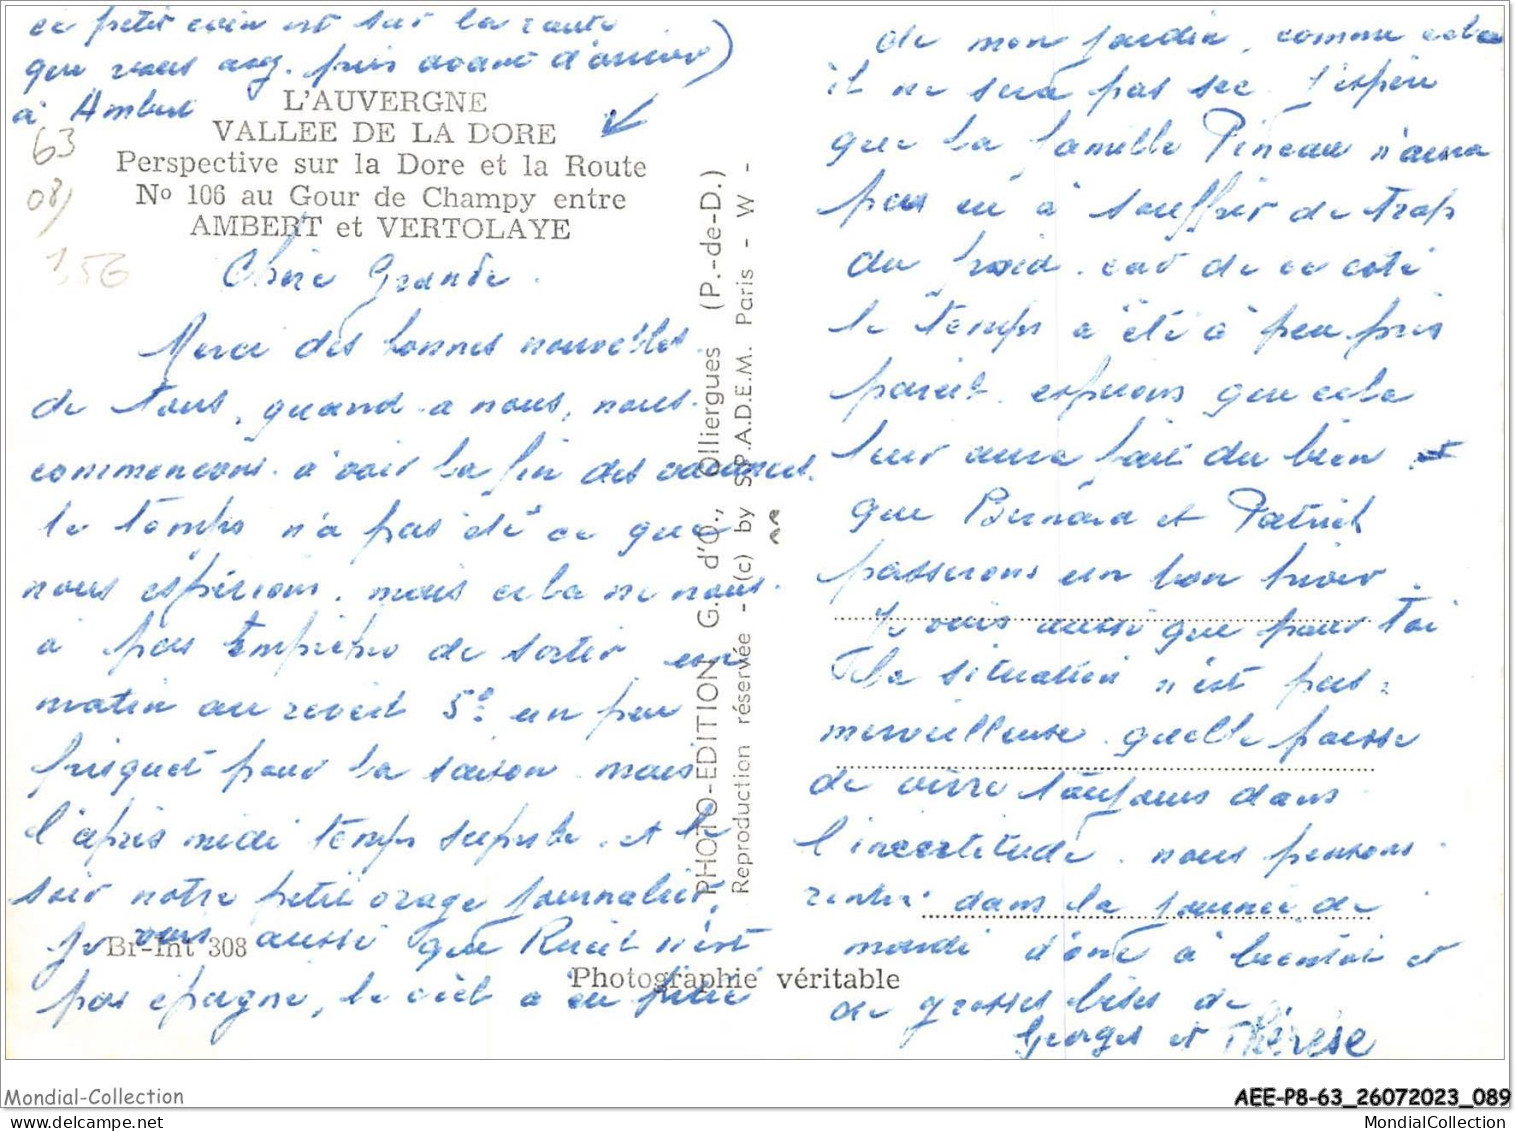 ce petit coin est sur la route
que vous avez pris avant d'arriver)
à Ambert
L'AUVERGNE
VALLEE DE LA DORE
Perspective sur la Dore et la Route
No 106 au Gour de Champy entre
AMBERT et VERTOLAYE
63
08)
156
Chère Grande.
Merci des bonnes nouvelles
de tous, quand a nous, nous
commencons a voir la fin des vacances.
le temps n'a pas été ce que
nous espérions. mais cela ne nous
a pas empêché de sortir un
matin au reveil 5° un peu
frisquet pour la saison mais
l'après midi temps superbe. et le
soir notre petit orage journalier,
je vois aussi que Rueil n'est
pas épargné, le ciel a eu pitié
Br-Int 308
Photographie véritable
PHOTO-EDITION G. d'O., Olliergues (P.-de-D.)
Reproduction réservée - (c) by S.P.A.D.E.M. Paris - W -
de mon jardin, comme cela
il ne sera pas sec. j'espère
que la famille Pineau n'aura
pas eu à souffrir de trop
du froid. car de ce coté
le temps a été à peu près
pareil. espérons que cela
leur aura fait du bien et
que Bernard et Patrick
passerons un bon hiver.
Je vois aussi que pour toi
la situation n'est pas
merveilleuse. quelle
de vivre toujours dans
l'incertitude. nous pensons
rentré dans la journée de
mardi donc à bientôt et
de grosses bises de
Georges et Thérèse
Mondial-Collection
AEE-P8-63_26072023_089
MondialCollection.net